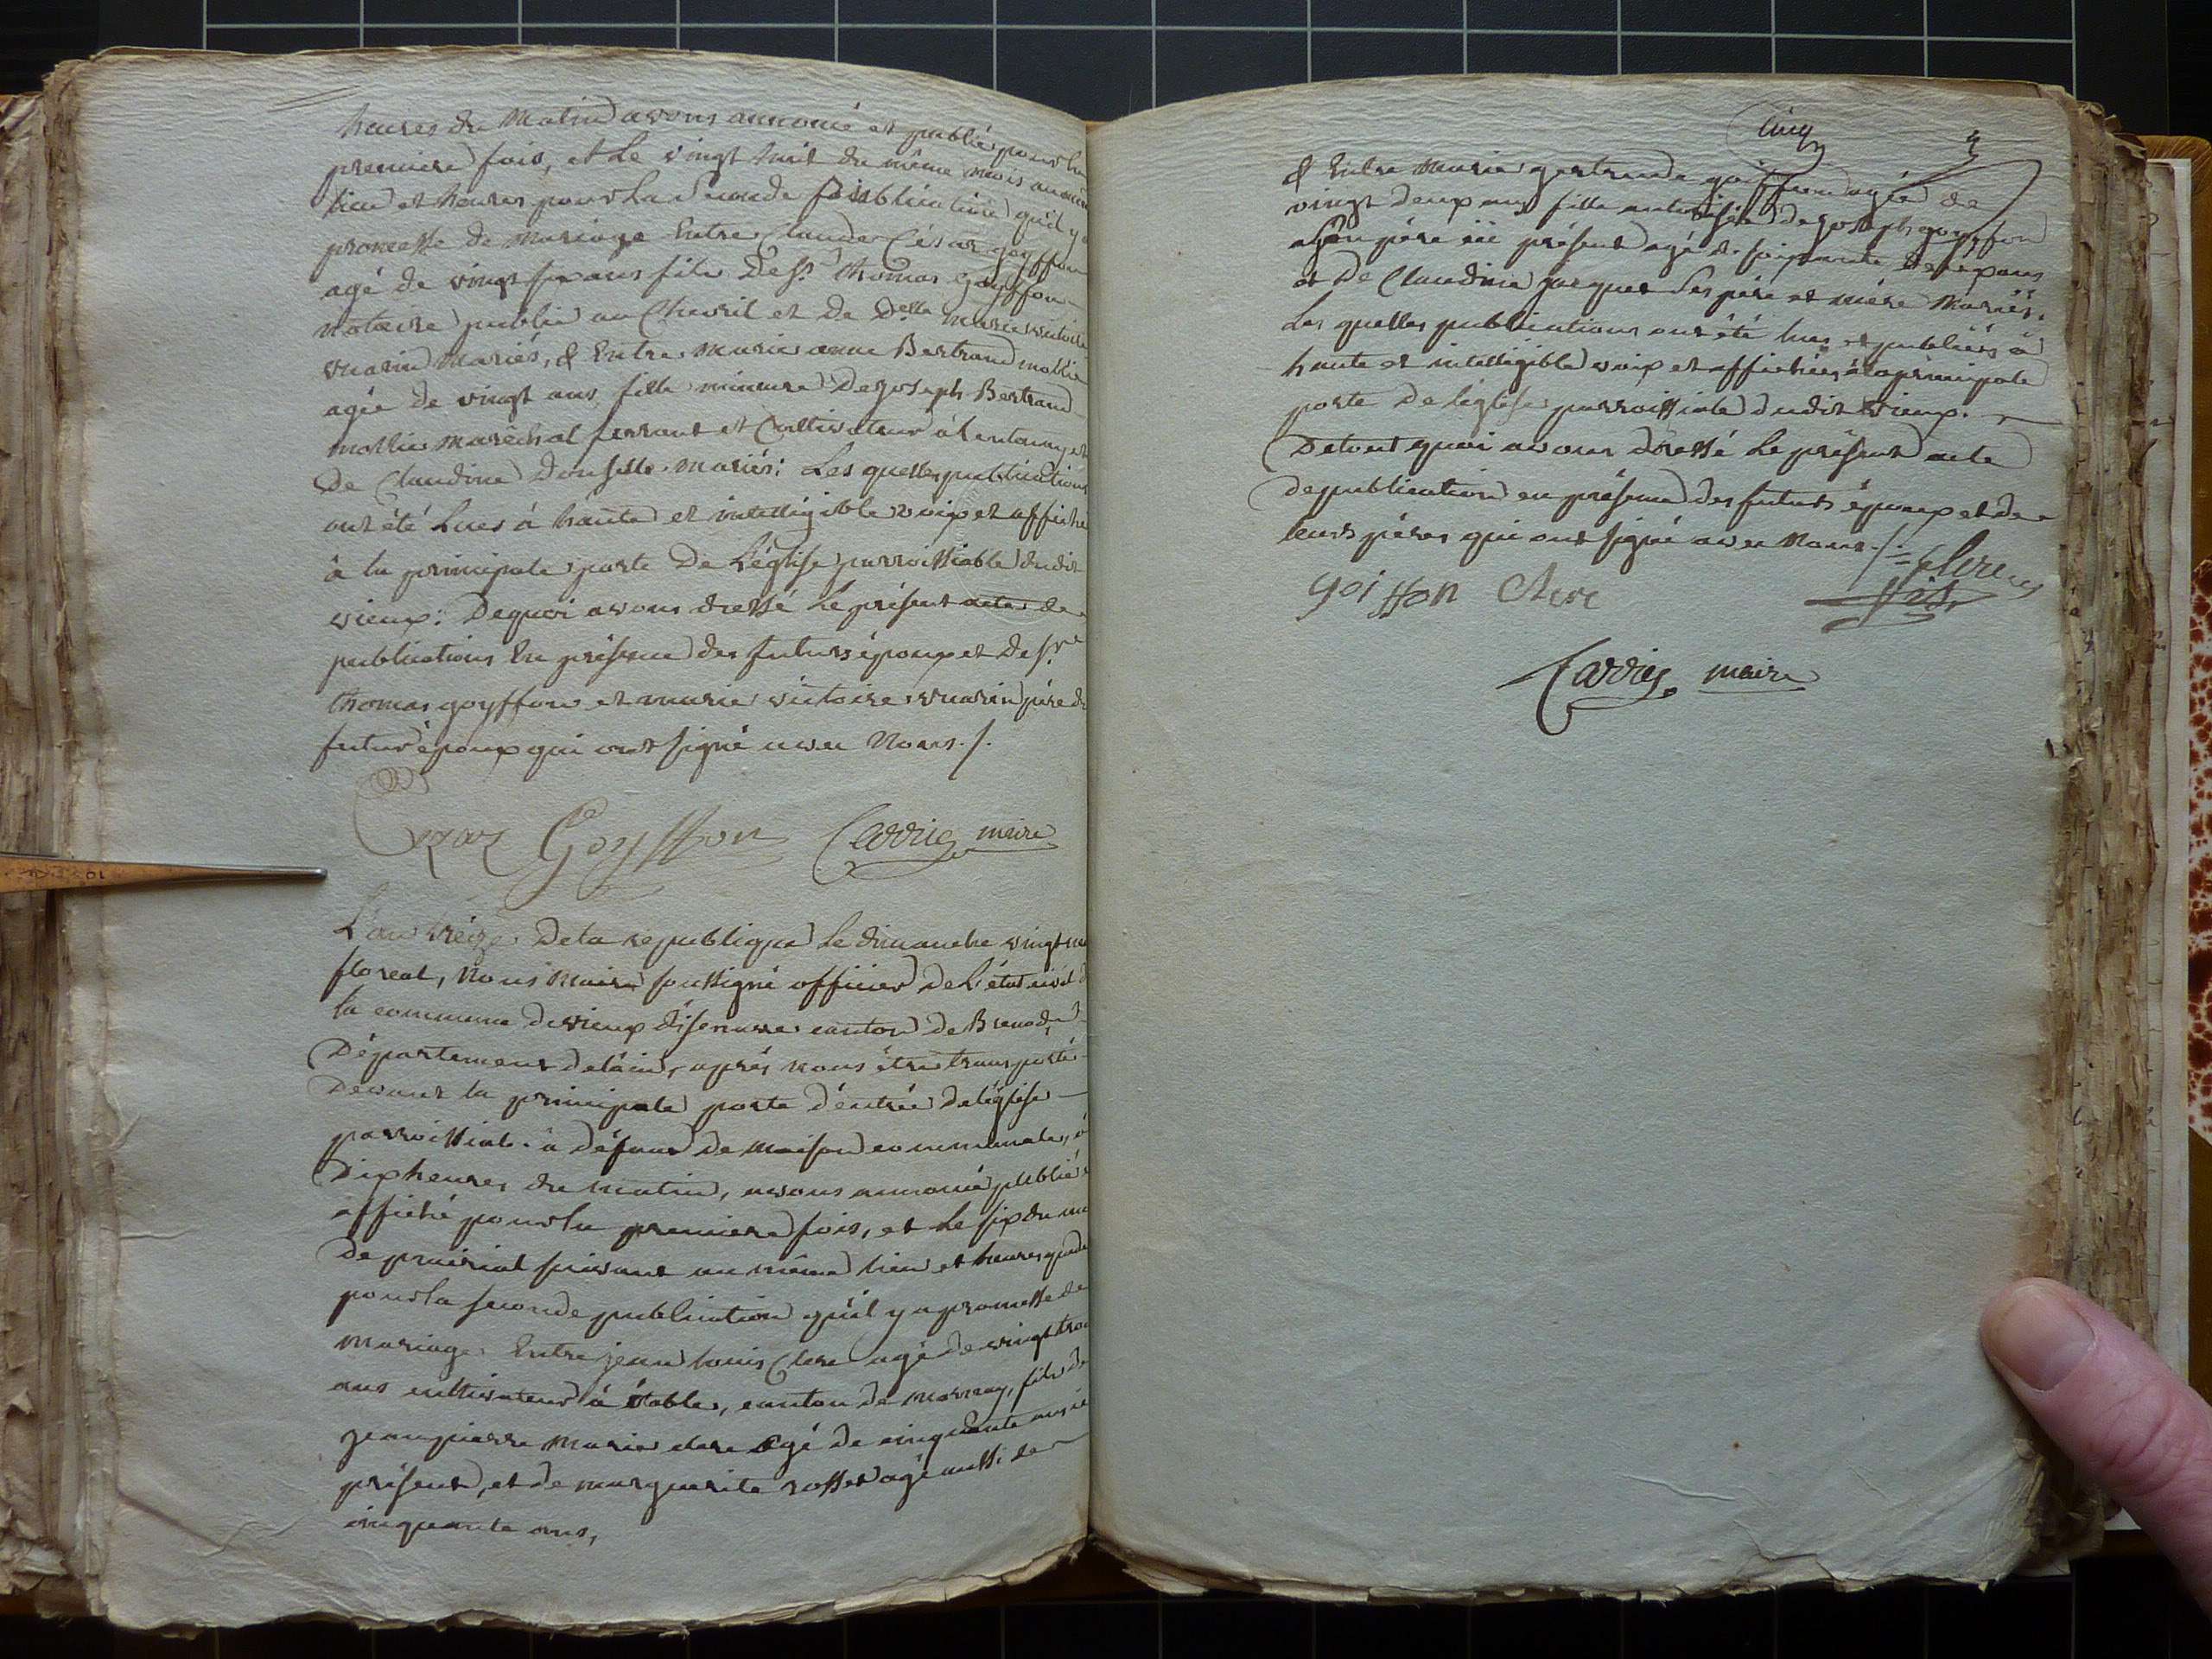 heures du matin avons annoncé et publié pour la
premiere fois, et le vingt huit du même mois au même
lieu et heures pour la seconde publication qu'il y a
promesse de mariage Entre Claude César goyffon
agé de vingt six ans fils de Sr. thomas Goyffon
notaire public au Chevril et de Delle marie victoire
vuarin mariés, & Entre marie anne Bertrand mollie
agée de vingt ans fille mineure de joseph Bertrand
mollie maréchal ferrant et Cultivateur à Lentenay et
de Claudine mariés: Les quelles publications
ont été lues à haute et intelligible voix et affiché
à la principale porte De L'église parroissiable dudit
vieux: De quoi avons dressé le présent acte de
publications En présence des futurs époux et de Sr.
thomas goyffon et marie victoire vuarin père du
futur époux qui ont signé avec Nous./.
Cezar Goyffon Carrier maire
L'an treize De la republique le dimanche vingt neuf
floreal, Nous Maire soussigné officier de L'état civil de
la commune de vieux d'isenave canton de Brenod,
Département de l'ain, après nous être transporté
Devant la principale porte d'entrée de l'église
parroissiale à défaut de maison communale, à
Dix heures du matin, avons annoncé publié &
affiché pour la premiere fois, et le six du mois
De prairial suivant au même lieu et heures que de
pour la seconde publication qu'il y a promesse de
mariage Entre jean louis Clere agé de vingt trois
ans cultivateur à étables, canton de mornay, fils de
jean pierre marie clere agé de cinquante ans ici
présent, et de marguerite rosset agé aussi de
cinquante ans,
Cinq
& Entre Marie gertrude goiffon agée de
vingt deux ans fille autorisée de joseph goyffon
son père ici présent agé de soixante ans
et de Claudine jarquet Ses père et mère Mariés.
Les quelles publications ont été lues et publiées à
haute et intelligible voix et affichées à la principale
porte De l'église parroissiale dudit vieux.
De tout quoi avons dressé Le présent acte
de publication en présence des futurs époux et de
leurs pères qui ont signé avec Nous./.
goiffon Clere clere
fils
Carrier maire